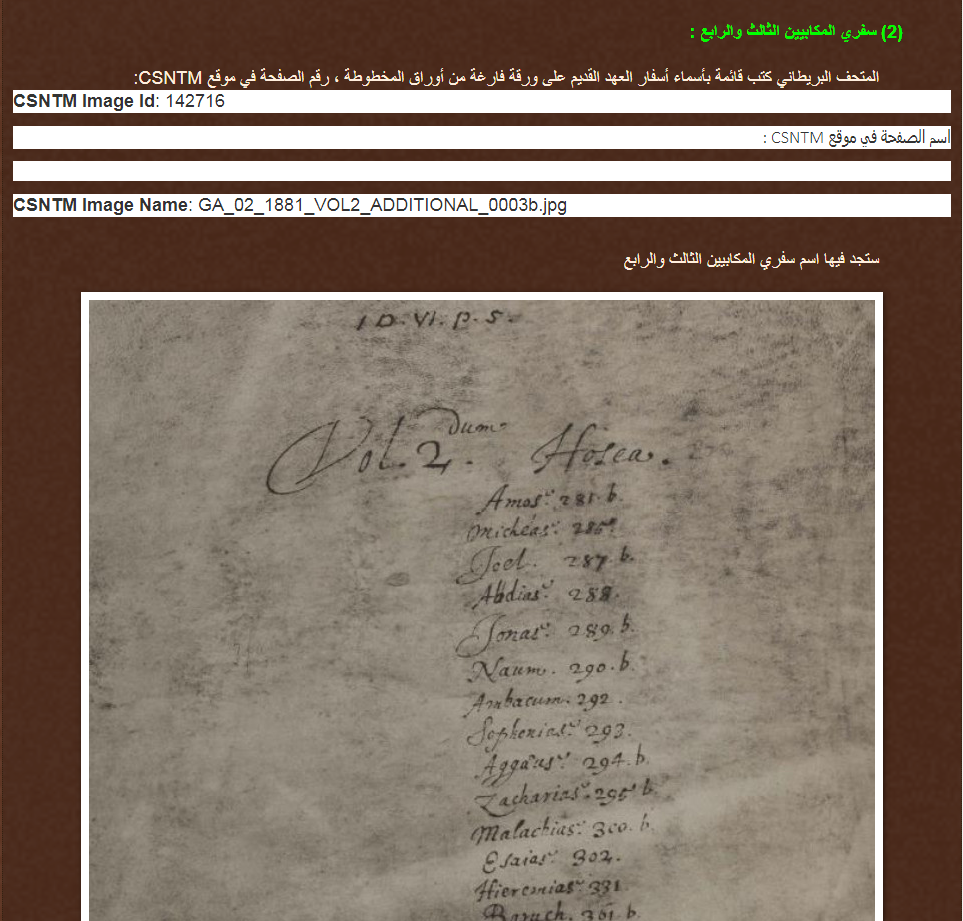 (2) سفري المكابيين الثالث والرابع :
المتحف البريطاني كتب قائمة بأسماء أسفار العهد القديم على ورقة فارغة من أوراق المخطوطة ، رقم الصفحة في موقع CSNTM:
CSNTM Image Id: 142716
اسم الصفحة في موقع CSNTM :
CSNTM Image Name: GA_02_1881_VOL2_ADDITIONAL_0003b.jpg
ستجد فيها اسم سفري المكابيين الثالث والرابع
1 D. VI. p. 5.
Vol. 2.dum Hosea.
Amos. 281. b.
Micheas.
Joel. 287. b.
Abdias. 288.
Jonas. 289. b.
Naum. 290. b.
Ambacum. 292.
Sophonias. 293.
Aggaeus. 294. b.
Zacharias. 295 b.
Malachias. 300. b.
Esaias. 302.
Hieremias. 331.
Baruch. 361. b.